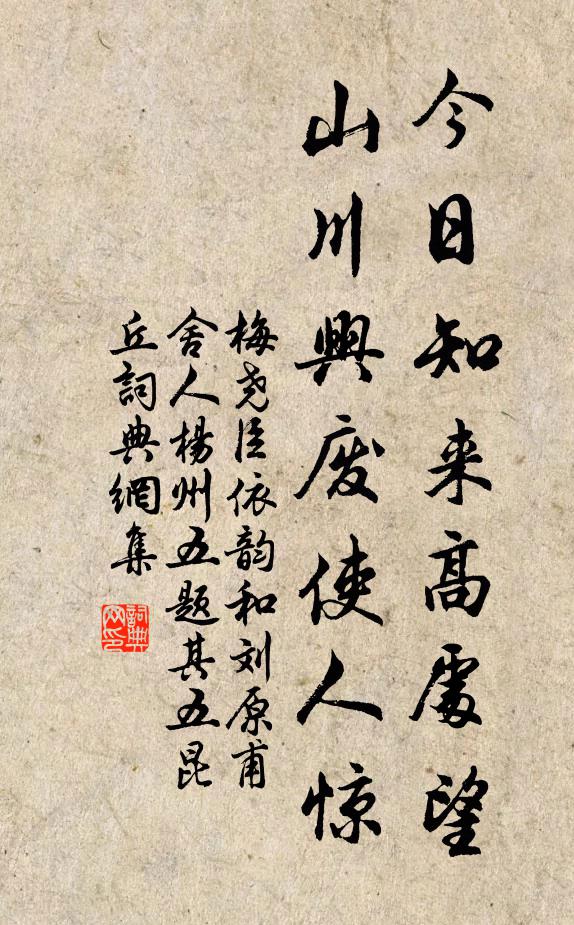 今日知来高處望
山川興废使人惊
梅尧臣依韵和刘原甫
舍人楊州五题其五昆
丘詞典網集
詞典网印